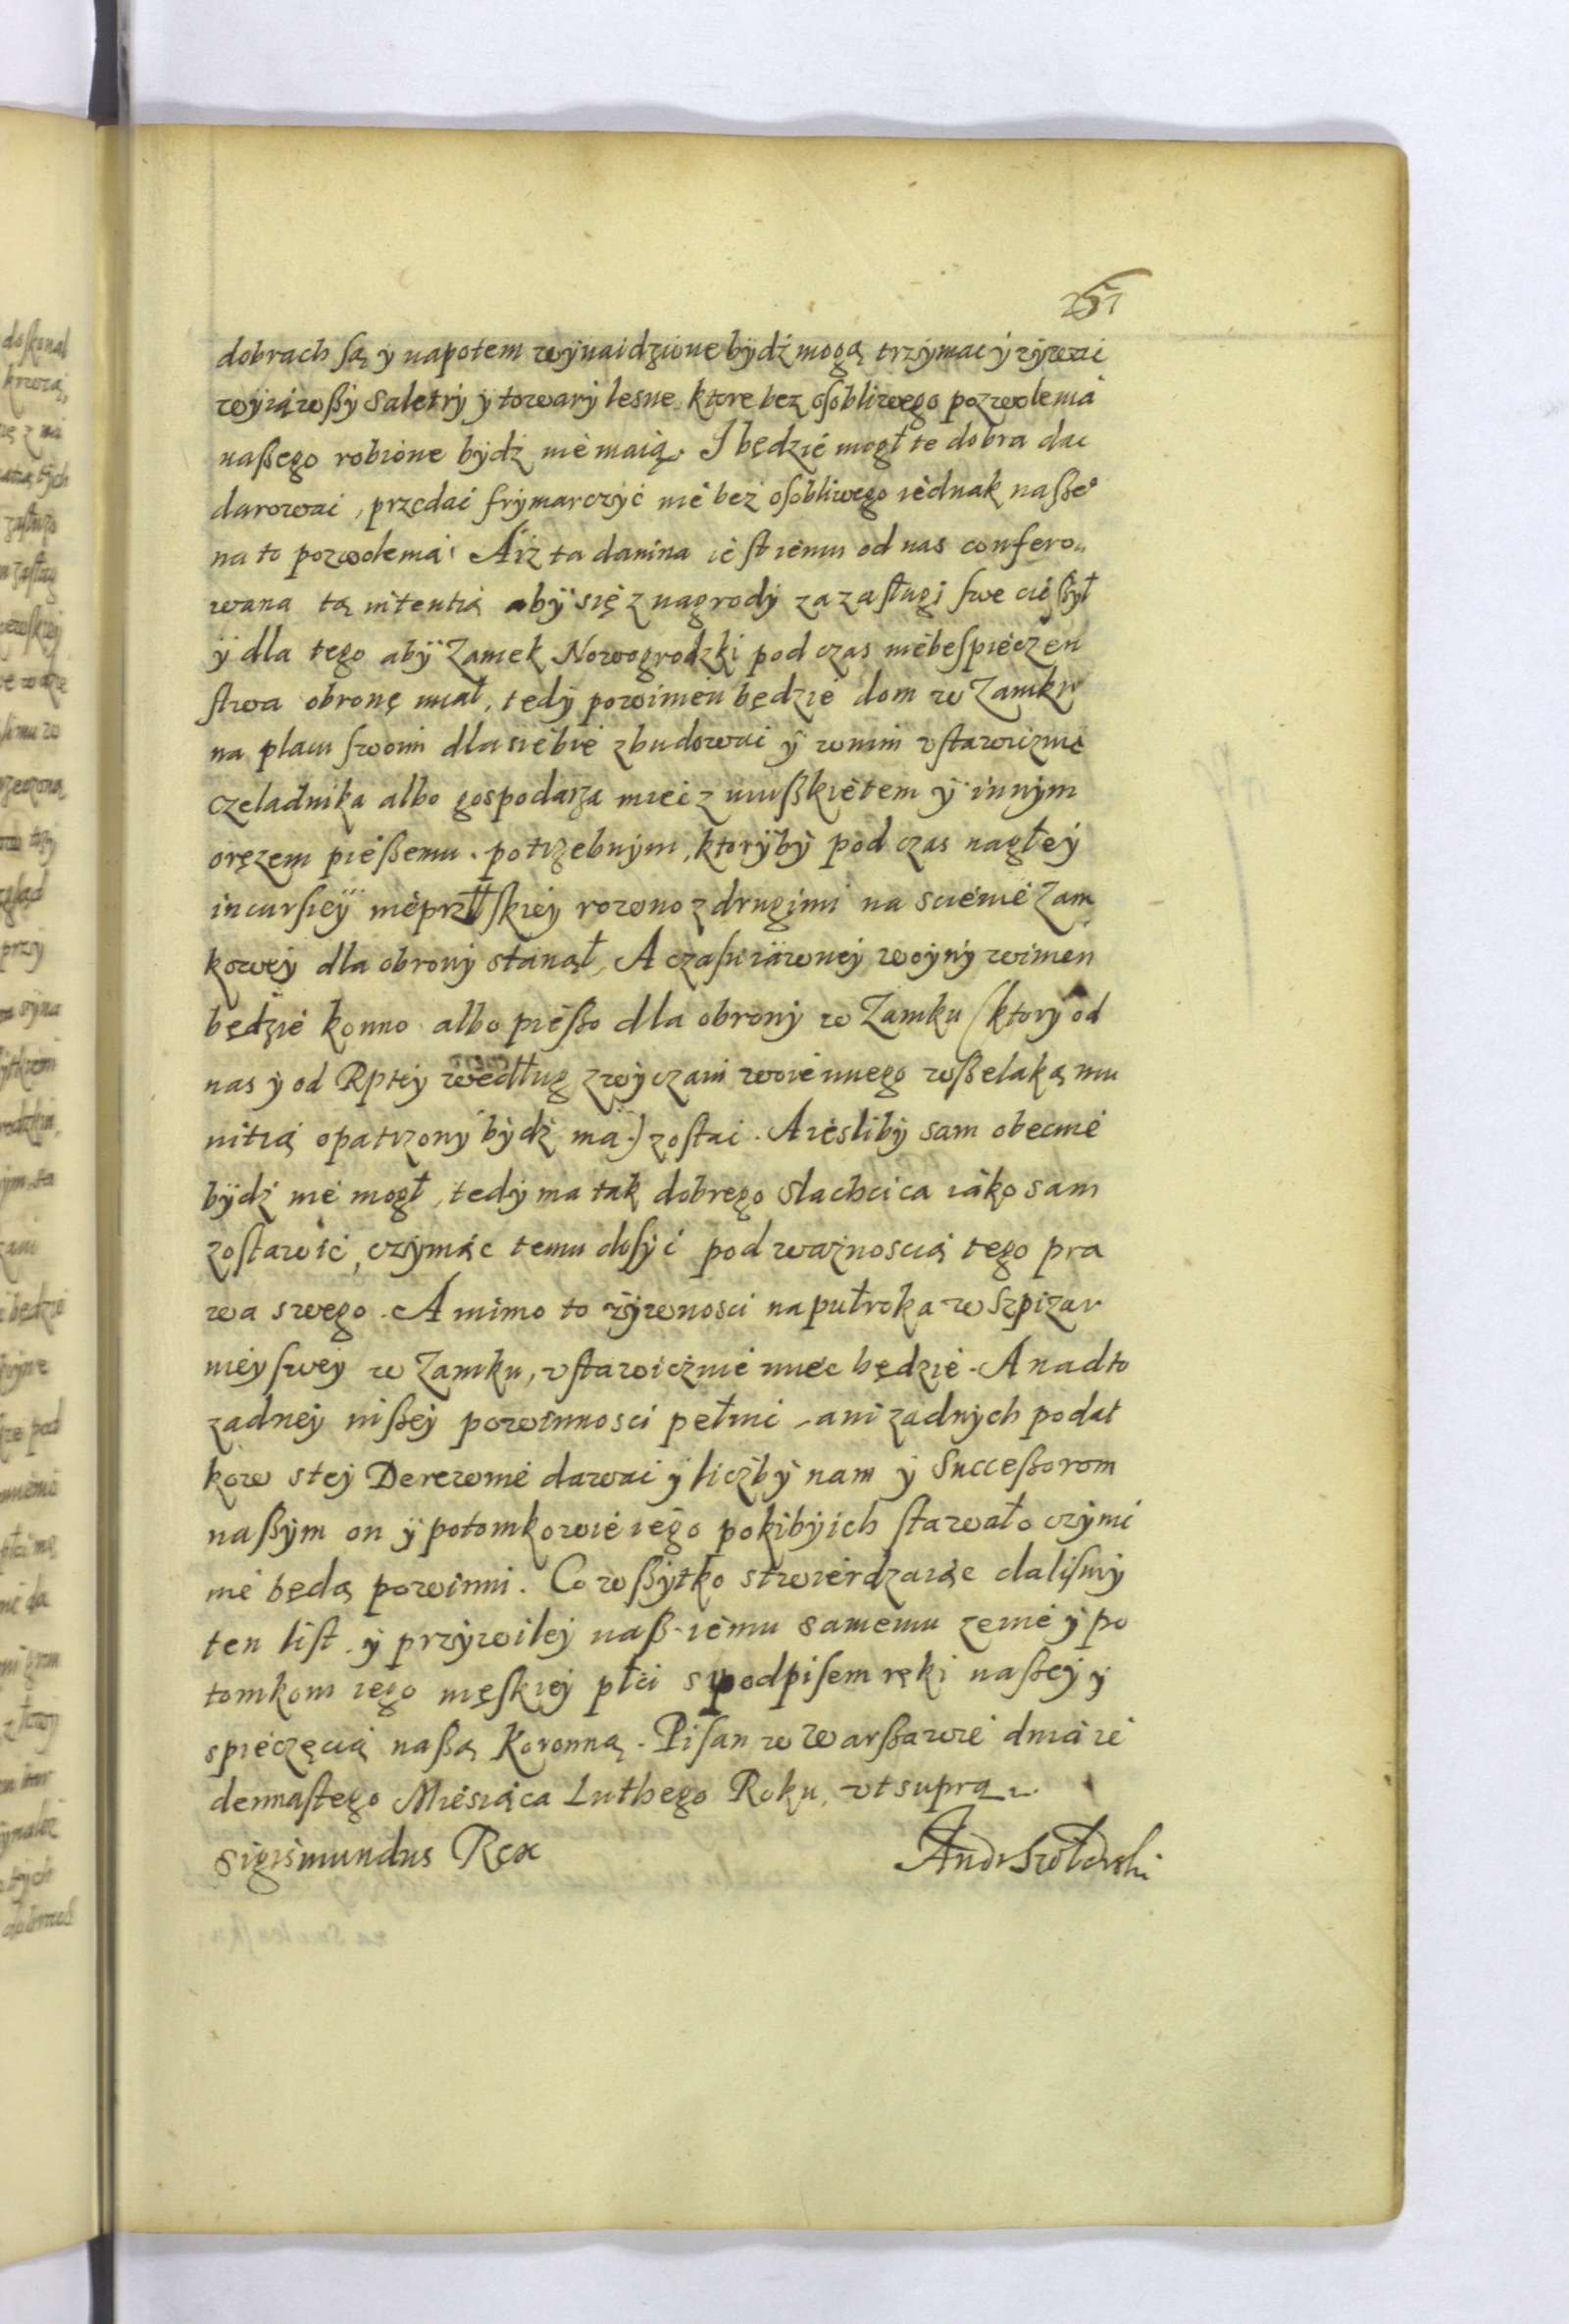 257
dobrach są ÿ napotem wÿnaidzione bÿdź mogą trzÿmac ÿ vżÿwaċ
wÿiąwßÿ Saletrÿ ÿ towarÿ lesne ktore bez osobliwego pozwolenia
naßego robione bÿdź nie maią. I będzie mogł te dobra dac
darowac, przedac frÿmarczÿc nie bez osobliwego iednak naße°
na to pozwolenia. A iż ta danina iest iemu od nas confero„
wana tą intentią abÿ się z nagrodÿ za zasługi swe cießÿł
ÿ dla tego abÿ Zamek Nowogrodzki pod czas niebespieczen
stwa obronę miał, tedÿ powinien będzie dom w Zamku
na placu swoim dla siebie zbudowac ÿ w nim vstawicznie
czeladnika albo gospodarza miec z mußkietem ÿ innÿm
oręzem pießemu potrzebnÿm, ktorÿbÿ pod czas nagłeÿ
incursieÿ nieprzłskieÿ rowno z drugimi na scienie Zam
koweÿ dla obronÿ stanął, A czasu iawneÿ woÿnÿ winien
będzie konno albo pießo dla obronÿ w Zamku (ktorÿ od
nas ÿ od Rpteÿ według zwÿczaiu woiennego wßelaką mu
nitią opatrzonÿ bÿdź ma) zostac. A iesliby sam obecnie
bÿdź nie mogł, tedÿ ma tak dobrego slachcica iako sam
zostawic, czÿniąc temu dosÿc pod ważnoscią tego pra
wa swego. A mimo to żÿwnosci na pułroka w Szpizar
nieÿ sweÿ w Zamku, vstawicznie miec będzie. A nadto
zadneÿ inßeÿ powinnosci pełnic ani zadnÿch podat
kow z teÿ Derewnie dawac ÿ liczbÿ nam ÿ Successorom
naßÿm on ÿ potomkowie iego pokibÿ ich stawało czÿnic
nie będą powinni. Co wßÿtko stwierdzaiąc dalismÿ
ten list ÿ przÿwileÿ naß iemu samemu zenie ÿ po
tomkom iego męskieÿ płci s podpisem ręki naßeÿ ÿ
s pieczęcią naßą Koronną. Pisan w Warßawie dnia ie
dennastego Miesiąca Luthego Roku, vt supra.
Sigismundus Rex
Andr Szołdrski